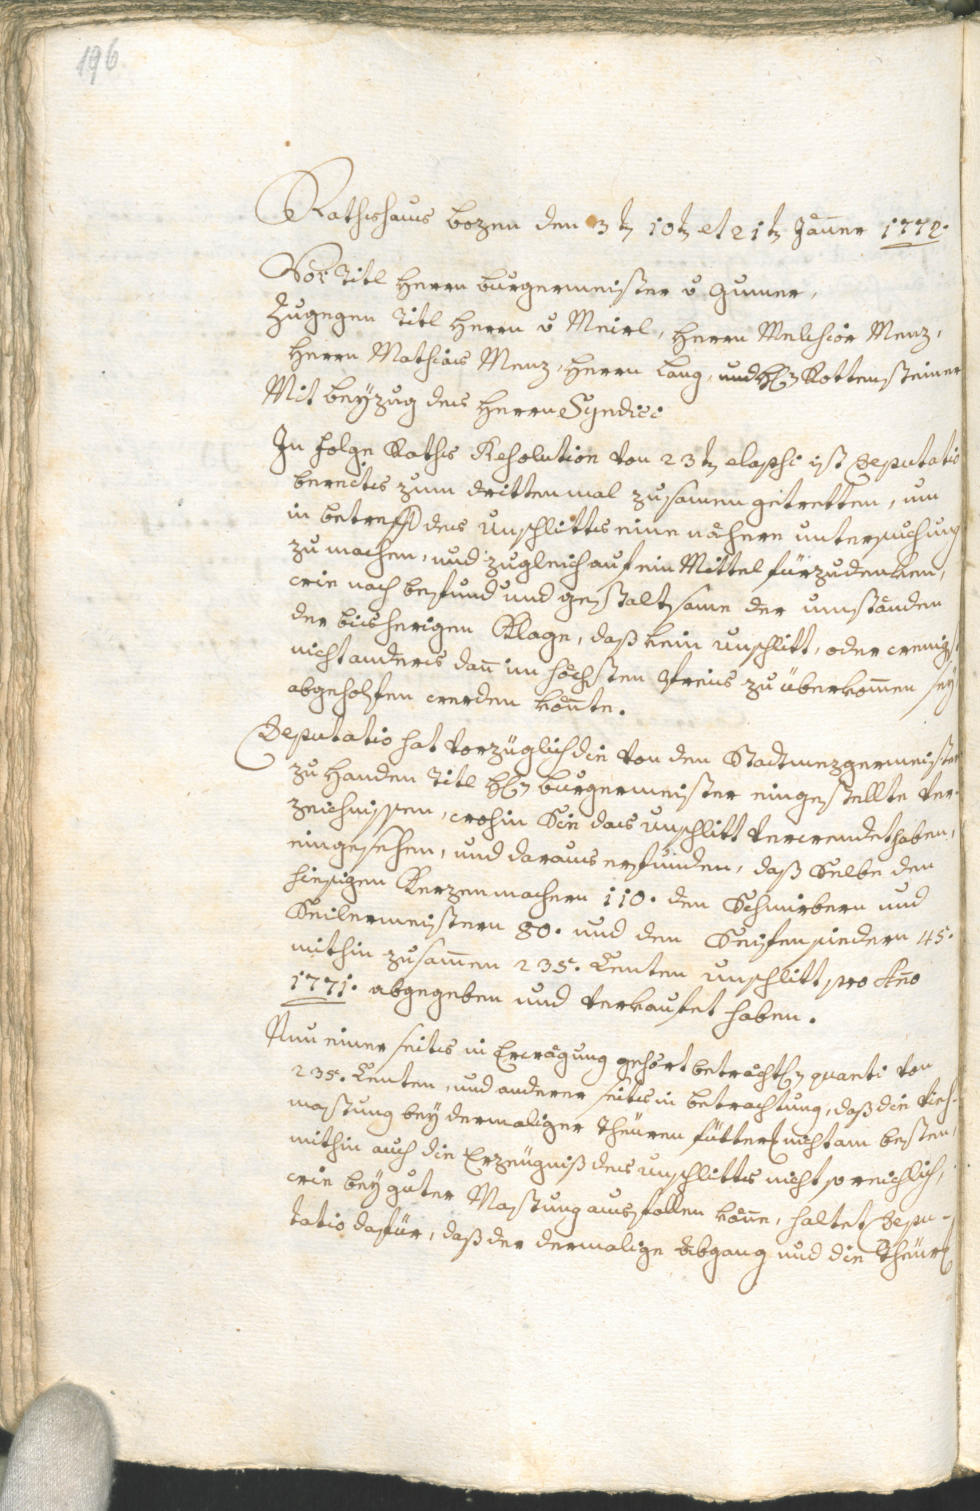 196
Rathshaus bozen den 3tn 10tn et 21tn Jäner 1772.
Vor Titl Herrn burgermeister v Gumer,
Zugegen Titl Herrn v Meirl, Herrn Melchior Menz,
Herrn Mathias Menz, Herrn Lang, und Hn Rottensteiner
Mit beyzug des Herrn Syndici
In Folge Raths Resolution von 23tn elapsi ist Deputatio
bereits zum drittenmal zusamen getretten, um
in betreff des Unschlitts eine nähere untersuchung
zu machen, und zugleich auf ein Mittel fürzudenken,
wie nach befund und gestaltsame der umständen
der bisherigen Klage, daß kein unschlitt, oder wenigst
nicht anders dan im höchsten Preis zu überkomen sey
abgeholfen werden könte.
Deputatio hat vorzüglich die von den Stadtmezgermeister
zu Handen Titl Hn burgermeister eingestellte Ver-
zeichnissen, wohin Sie das unschlitt verwendet haben,
eingesehen, und daraus erfunden, daß Selbe den
hiesigen Kerzenmachern 110. den Schmirbern und
Seilermeistern 80. und den Seifensiedern 45.
mithin zusamen 235. Centen unschlitt pro Ano
1771. abgegeben und verkaufet haben.
Nun einer seits in Erwägung gehört beträchtln quanti von
235. Centen, und anderer seits in betrachtung, daß die Vieh-
mastung bey dermaliger theuren fütterey nicht am besten,
mithin auch die Erzeugniß des unschlitts nicht so reichlich,
wie bey guter Mastung ausfallen köne, haltet Depu-
tatio dafür, daß der dermalige Abgang und die Theure